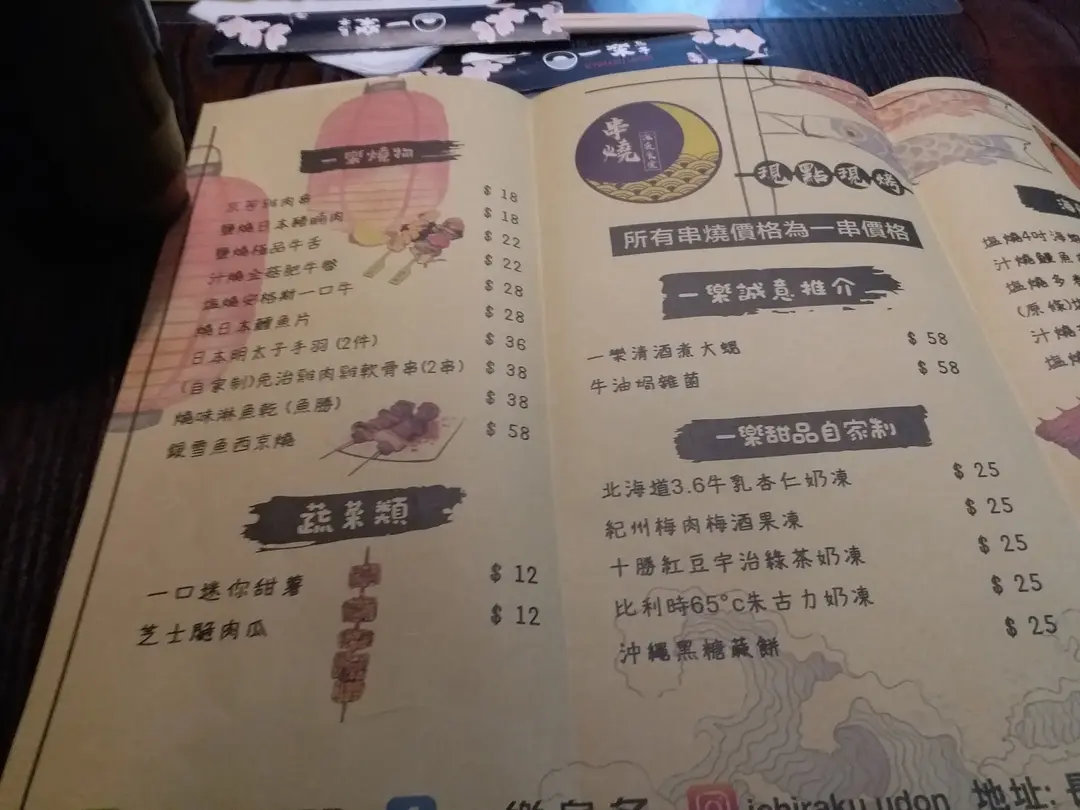 一樂
一樂燒物
京葱雞肉串 $ 18
鹽燒日本豬腩肉 $ 18
鹽燒極品牛舌 $ 22
汁燒金菇肥牛卷 $ 22
塩燒安格斯一口牛 $ 28
燒日本鱈魚片 $ 28
日本明太子手羽(2件) $ 36
(自家制)免治雞肉雞軟骨串(2串) $ 38
燒味淋魚乾(魚勝) $ 38
銀雪魚西京燒 $ 58
蔬菜類
一口迷你甜薯 $ 12
芝士脆肉瓜 $ 12
串燒
現點現烤
所有串燒價格為一串價格
一樂誠意推介
一樂清酒煮大蜆 $ 58
牛油焗雜菌 $ 58
一樂甜品自家制
北海道3.6牛乳杏仁奶凍 $ 25
紀州梅肉梅酒果凍 $ 25
十勝紅豆宇治綠茶奶凍 $ 25
比利時65°c朱古力奶凍 $ 25
沖繩黑糖蕨餅 $ 25
塩燒4吋海
汁燒鰻魚
塩燒多
(原條)
汁燒
塩燒
ichiraku_udon
地址: